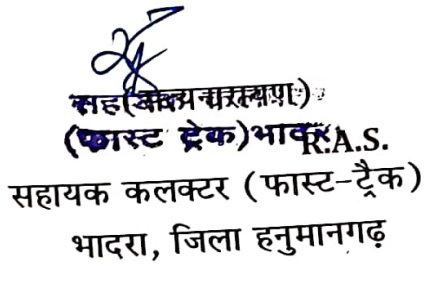 (सत्यनारायण)
(फास्ट ट्रेक) भादरा R.A.S.
सहायक कलक्टर (फास्ट-ट्रैक)
भादरा, जिला हनुमानगढ़